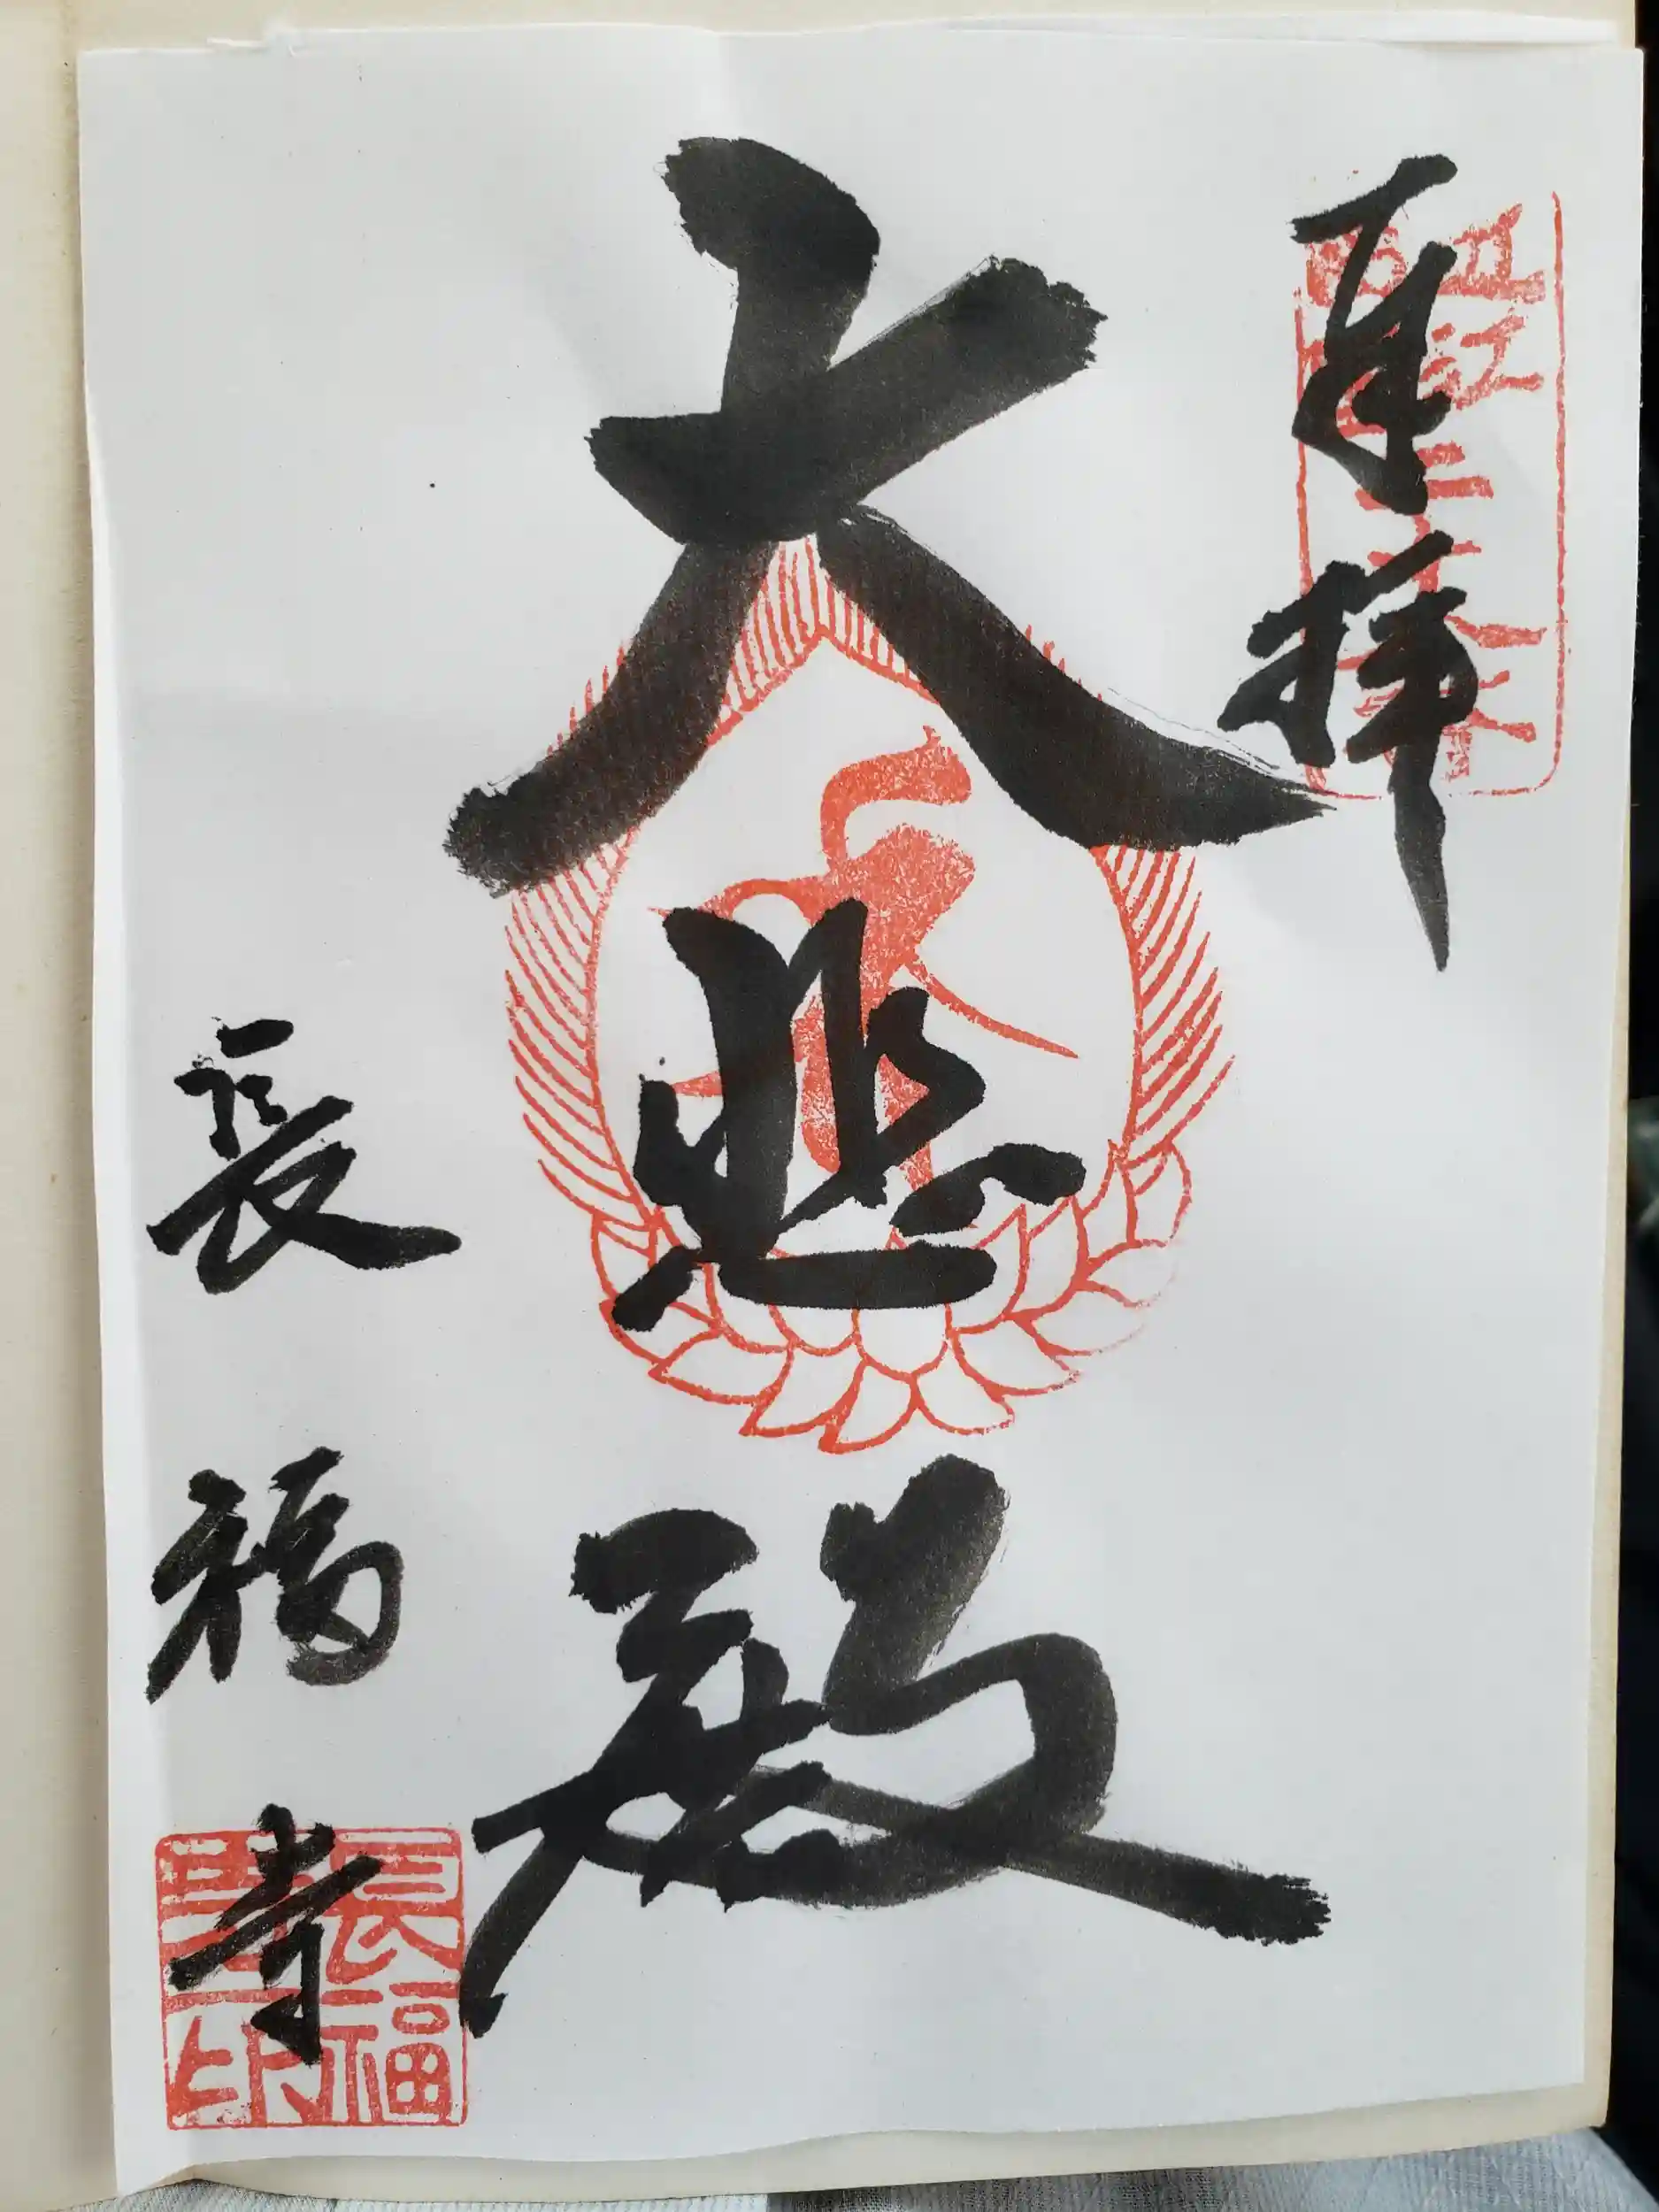 奉拝
大悲殿
長福寺
長福寺印